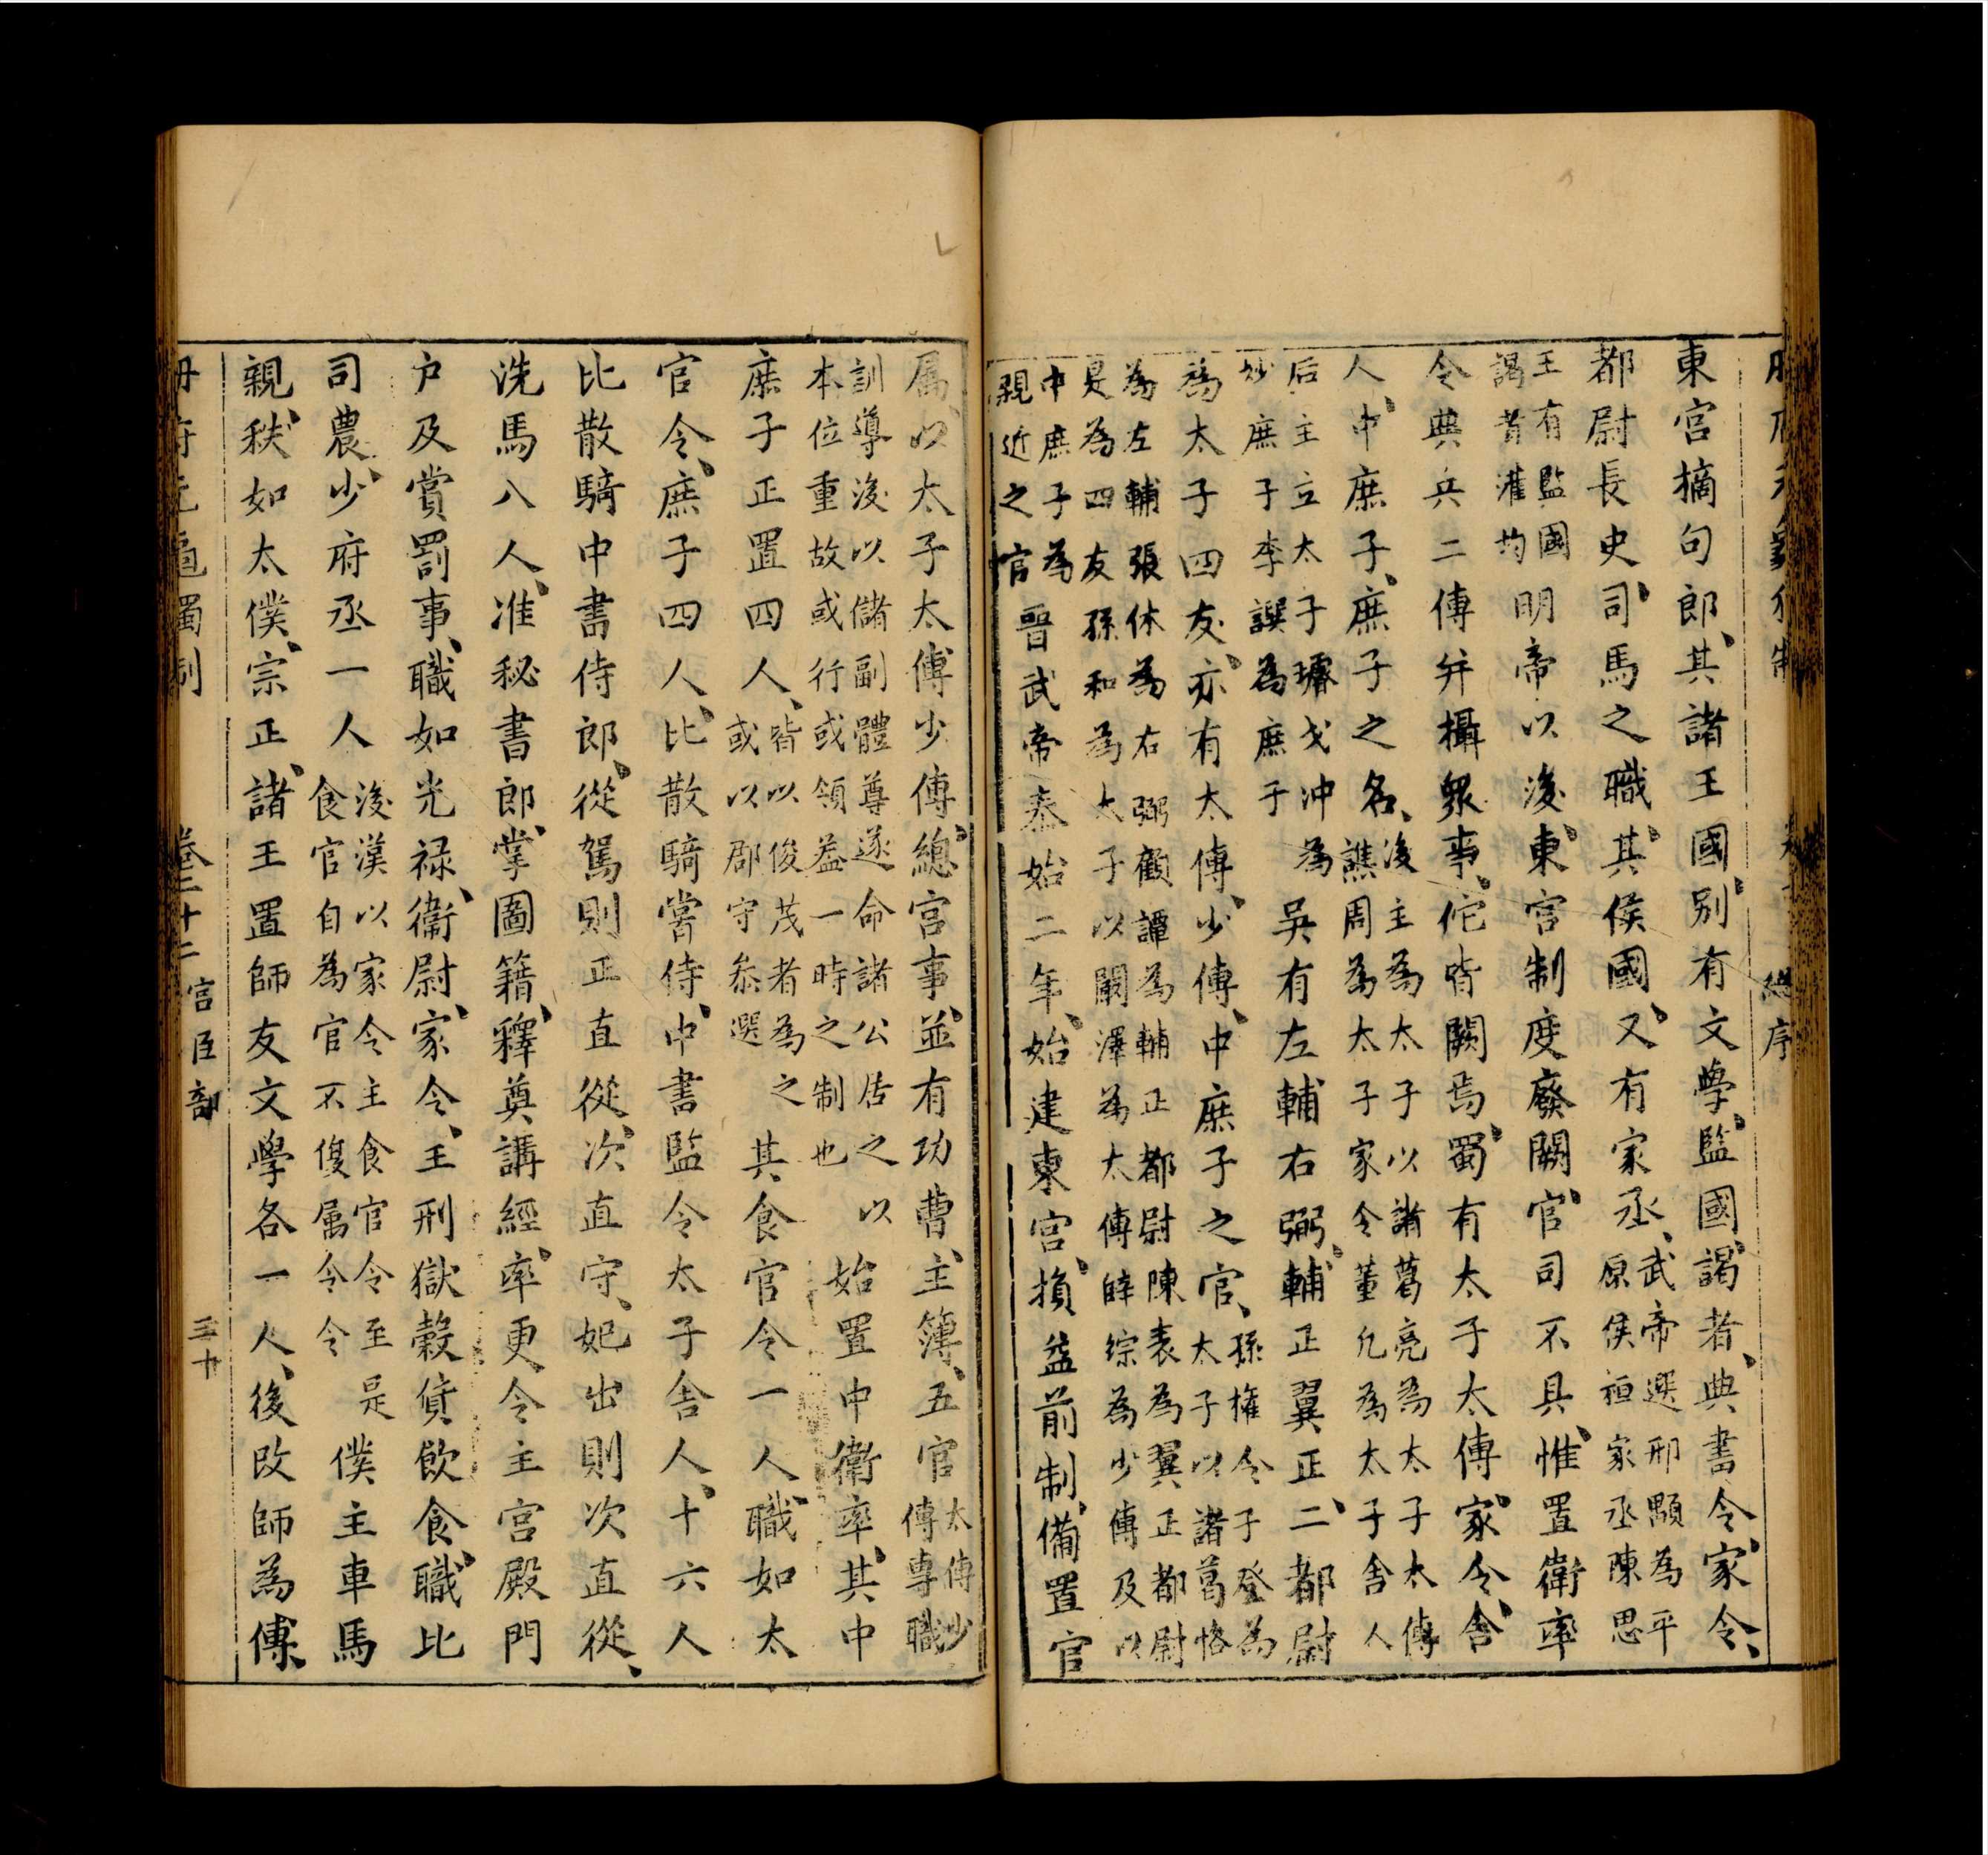 總序
東宮摘句郎其諸王國別有文學監國謁者典書令家令
都尉長史司馬之職其侯國又有家丞武帝選邢顒為平原侯植家丞陳思
王有監國謁者灌均明帝以後東宮制度廢闕官司不具惟置衛率
令典兵二傅并攝眾事佗皆闕焉蜀有太子太傅家令舍
人中庶子庶子之名後主為太子以諸葛亮為太子太傅譙周為太子家令董允為太子舍人
后主立太子璿戈冲為妙庶子李譔為庶子吳有左輔右弼輔正翼正二都尉
為太子四友亦有太傅少傅中庶子之官孫權令子登為太子以諸葛恪
為左輔張休為右弼顧譚為輔正都尉陳表為翼正都尉是為四友孫和為太子以闞澤為太傅薛綜為少傅及以
中庶子為親近之官晉武帝泰始二年始建東宮損益前制備置官
属以太子太傅少傅總宮事並有功曹主簿五官太傅少傅專職
訓導後以儲副體尊遂命諸公居之以本位重故或行或領益一時之制也始置中衛率其中
庶子正置四人皆以俊茂者為之或以郡守叅選其食官令一人職如太
官令庶子四人比散騎常侍中書監令太子舍人十六人
比散騎中書侍郎從駕則正直從次直守妃出則次直從
洗馬八人准秘書郎掌圖籍釋奠講經率更令主宮殿門
户及賞罰事職如光祿衛尉家令主刑獄穀貨飲食職比
司農少府丞一人後漢以家令主食官令至是食官自為官不復属令令僕主車馬
親秩如太僕宗正諸王置師友文學各一人後改師為傅
冊府元龜獨制 卷二十二 官臣部 三十